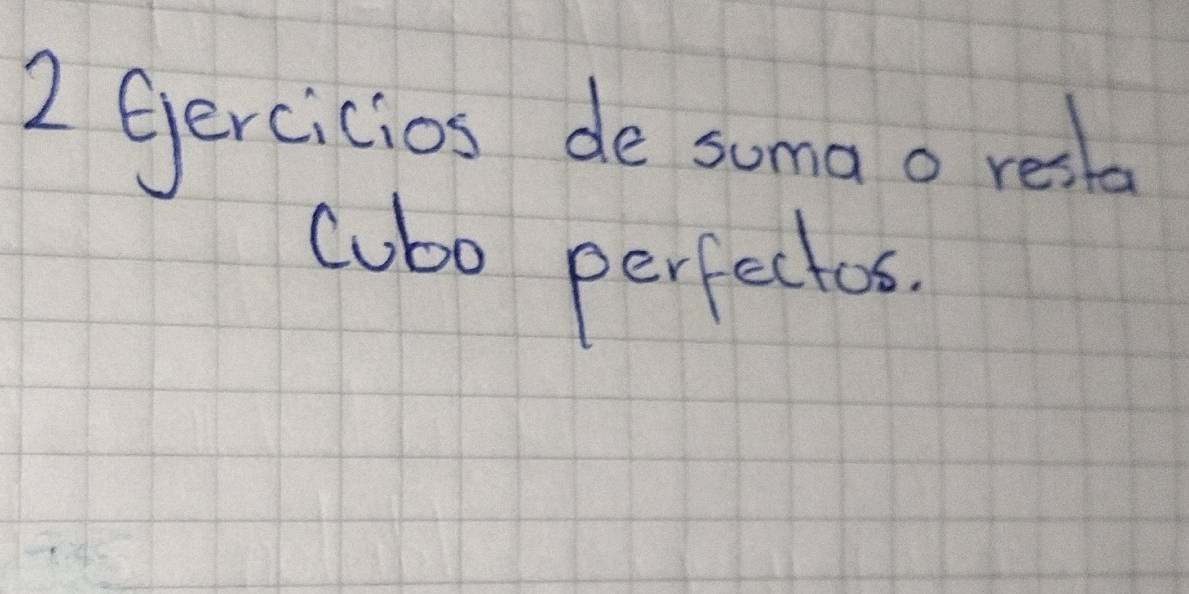 2 Ejercicios de suma o resta
Cubo perfectos.